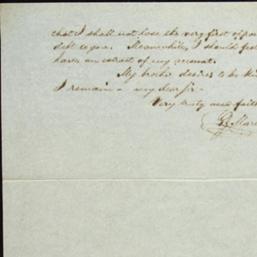 that I shall not lose the very first of
debt to you. Meanwhile, I should feel
have an extract of my account.
My brother desires to be
I remain - my dear Sir -
Very truly and faith